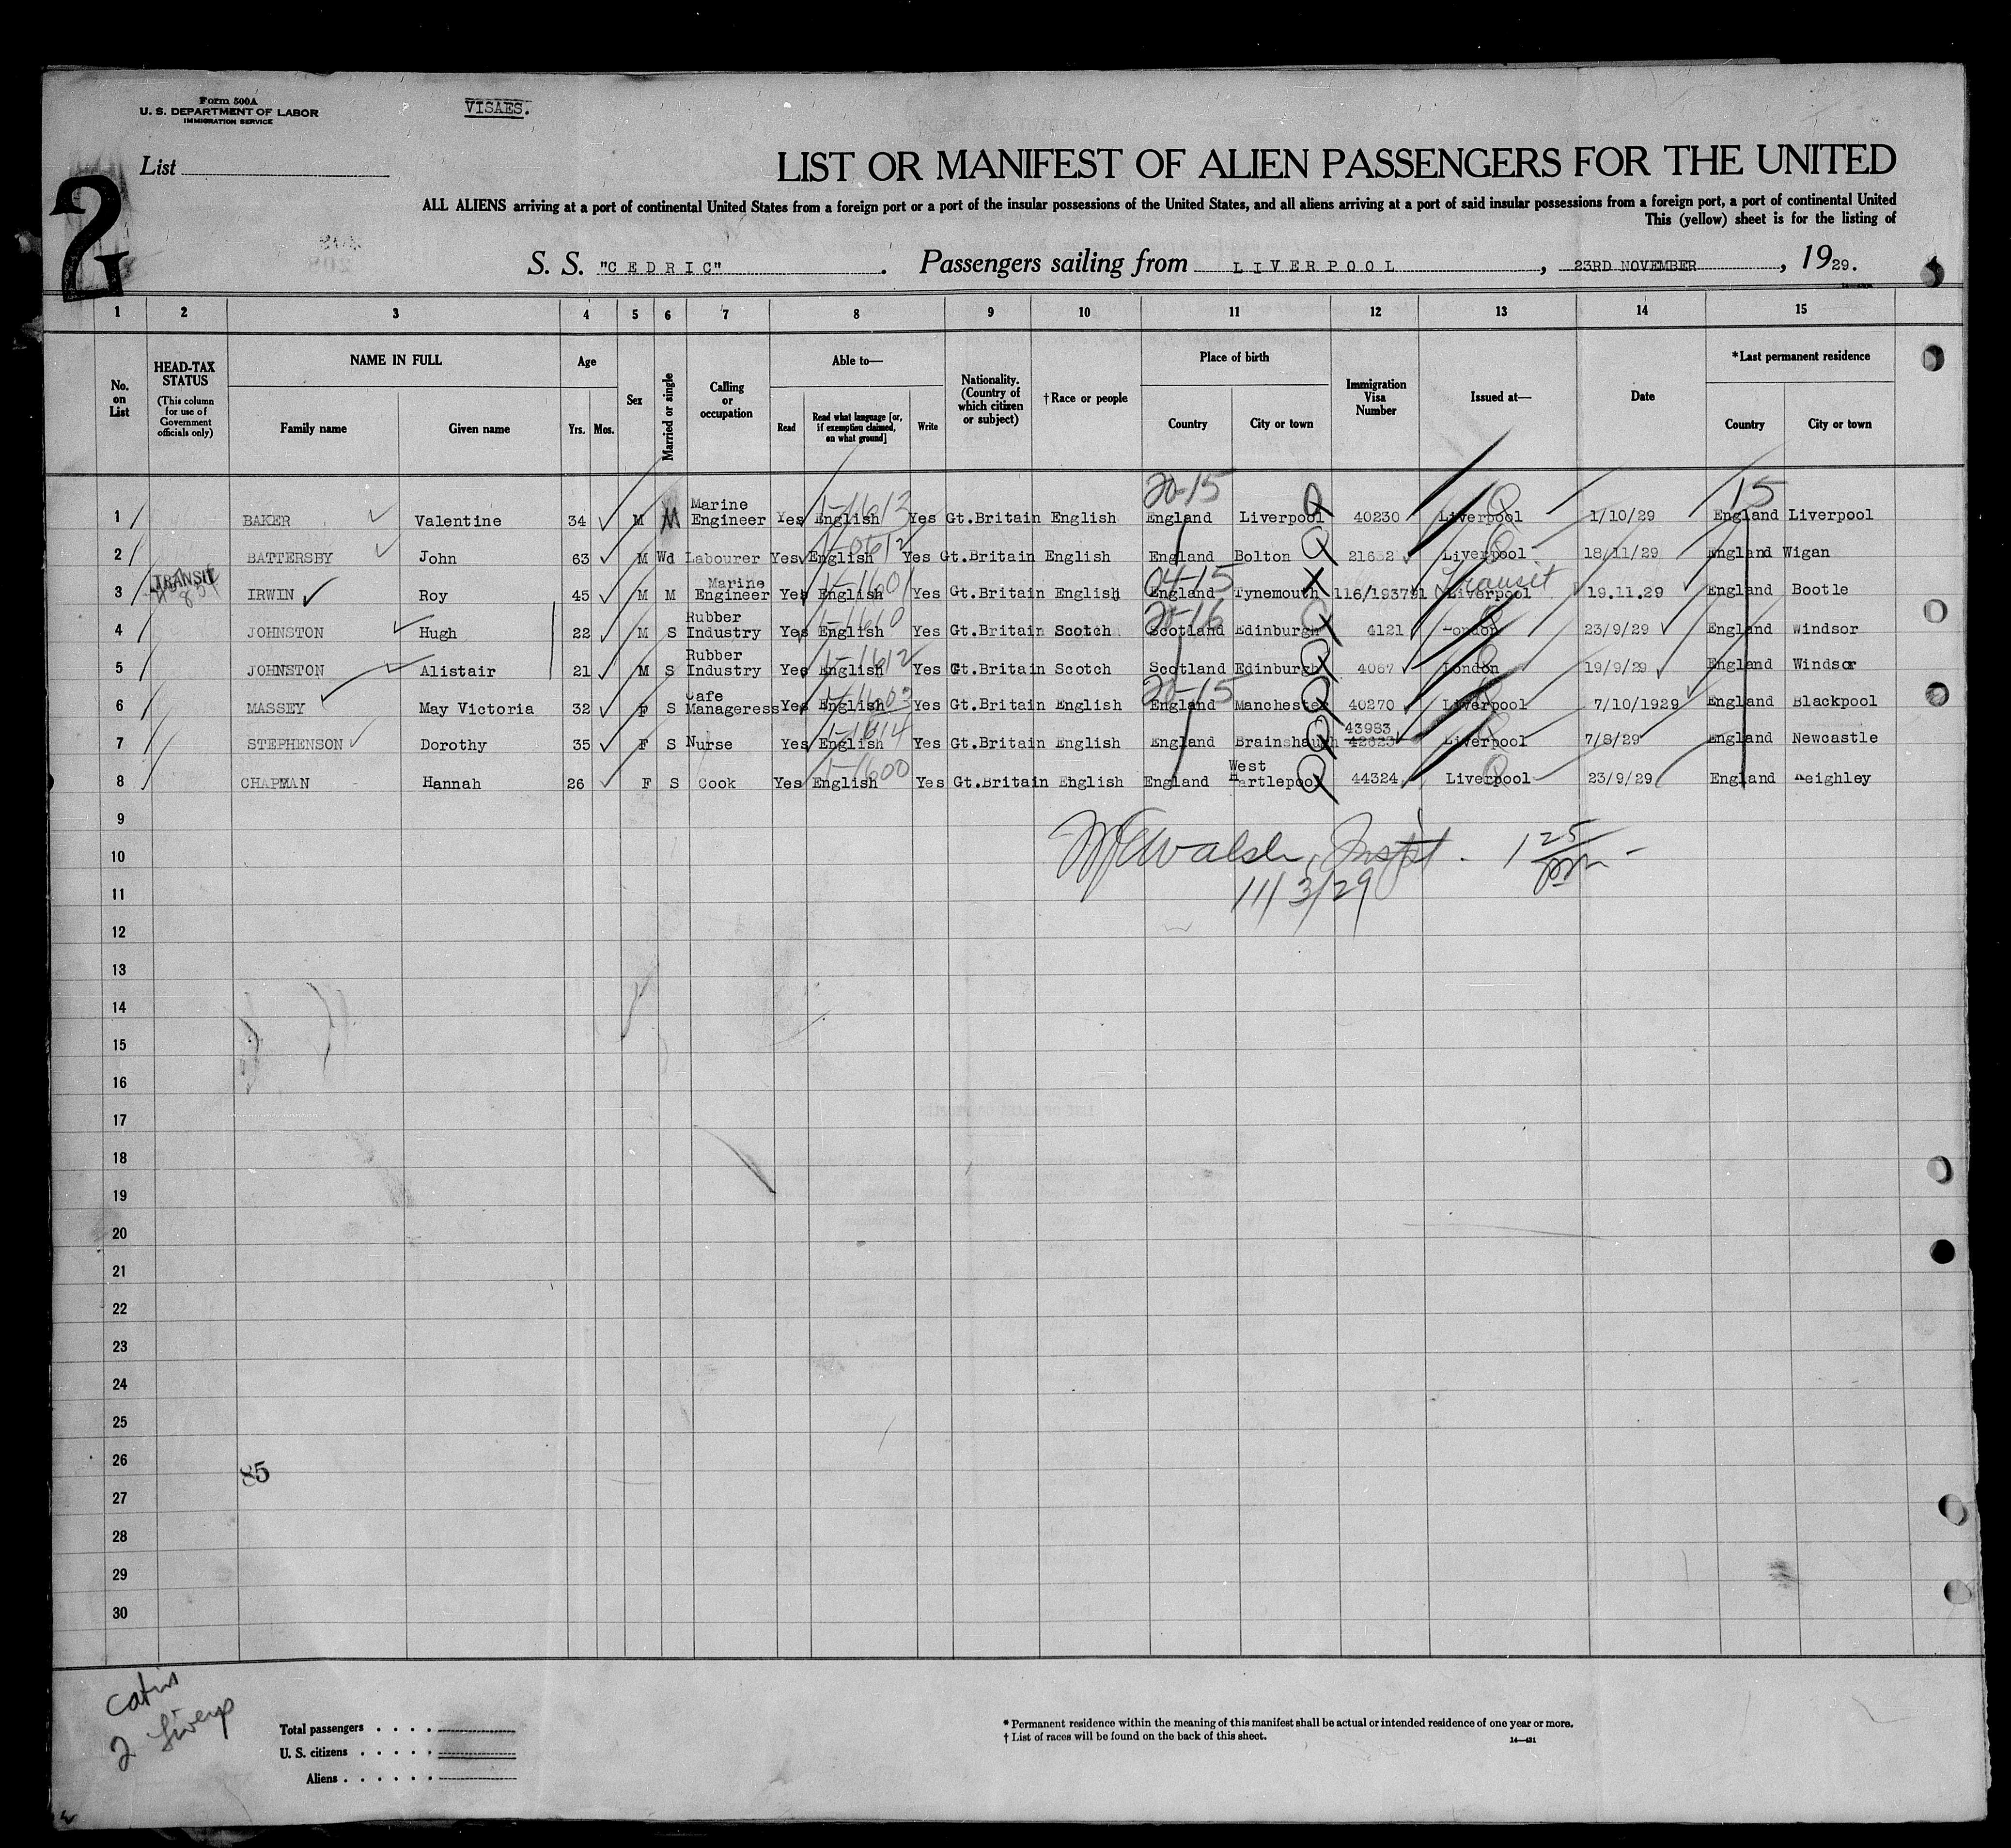 Form 500A
U. S. DEPARTMENT OF LABOR
IMMIGRATION SERVICE
VISAES.
List
2
LIST OR MANIFEST OF ALIEN PASSENGERS FOR THE UNITED
ALL ALIENS arriving at a port of continental United States from a foreign port or a port of the insular possessions of the United States, and all aliens arriving at a port of said insular possessions from a foreign port, a port of continental United
This (yellow) sheet is for the listing of
S. S. "CEDRIC" . Passengers sailing from LIVERPOOL , 23RD NOVEMBER , 1929.
1 2 3 4 5 6 7 8 9 10 11 12 13 14 15
No. on List
HEAD-TAX STATUS
(This column for use of Government officials only)
NAME IN FULL
Family name Given name
Age
Yrs. Mos.
Sex
Married or single
Calling or occupation
Able to—
Read Read what language [or, if exemption claimed, on what ground] Write
Nationality. (Country of which citizen or subject)
† Race or people
Place of birth
Country City or town
Immigration Visa Number
Issued at—
Date
* Last permanent residence
Country City or town
20-15 15
1 BAKER Valentine 34 M M Marine Engineer Yes English 1-1613 Yes Gt.Britain English England Liverpool Q 40230 Liverpool Q 1/10/29 England Liverpool
2 BATTERSBY John 63 M Wd Labourer Yes English Yes Gt.Britain English England Bolton Q Liverpool Q 18/11/29 England Wigan
TRANSIT
3 IRWIN Roy 45 M M Marine Engineer Yes English 1-1601 Yes Gt.Britain English 04-15 England Tynemouth X Transit Liverpool 19.11.29 England Bootle
4 JOHNSTON Hugh 22 M S Rubber Industry Yes English 1-1610 Yes Gt.Britain Scotch 20-16 Scotland Edinburgh Q 4121 London 23/9/29 England Windsor
5 JOHNSTON Alistair 21 M S Rubber Industry Yes English 1-1612 Yes Gt.Britain Scotch Scotland Edinburgh Q 4067 London 19/9/29 England Windsor
6 MASSEY May Victoria 32 F S Cafe Manageress Yes English 1-1603 Yes Gt.Britain English 20-15 England Manchester Q 40270 Liverpool 7/10/1929 England Blackpool
7 STEPHENSON Dorothy 35 F S Nurse Yes English 1-1614 Yes Gt.Britain English England Q 43983 42623 Liverpool 7/8/29 England Newcastle
8 CHAPMAN Hannah 26 F S Cook Yes English 1-1600 Yes Gt.Britain English England West Hartlepool Q 44324 Liverpool Q 23/9/29 England Keighley
9
10 Walsh, Inspt. 1 25 pm
11 11/3/29
12
13
14
15
16
17
18
19
20
21
22
23
24
25
26 85
27
28
29
30
2 Liverp
Total passengers
U. S. citizens
Aliens
* Permanent residence within the meaning of this manifest shall be actual or intended residence of one year or more.
† List of races will be found on the back of this sheet.
14—431